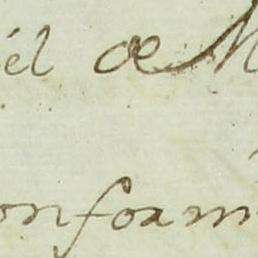 él de M
onform